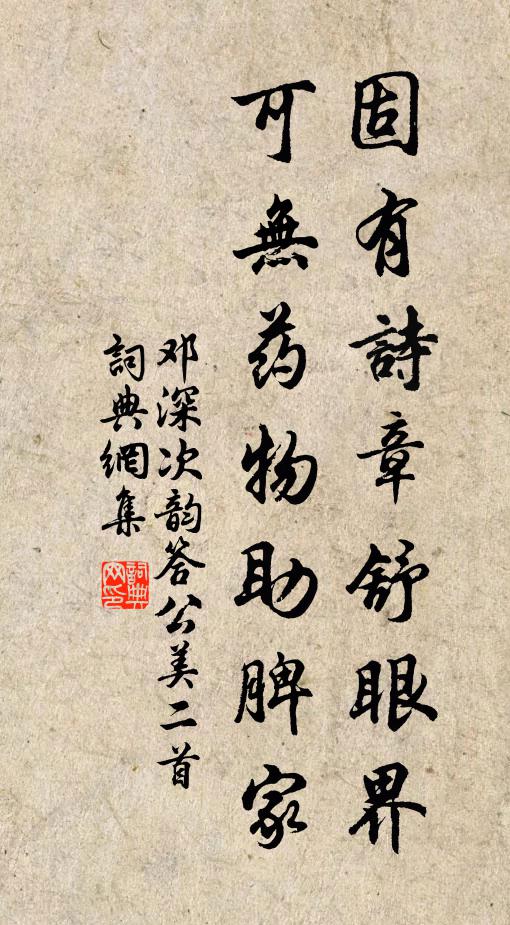 固有詩章舒眼界
可無药物助脾家
邓深次韵答公美二首
詞典網集
詞典网印